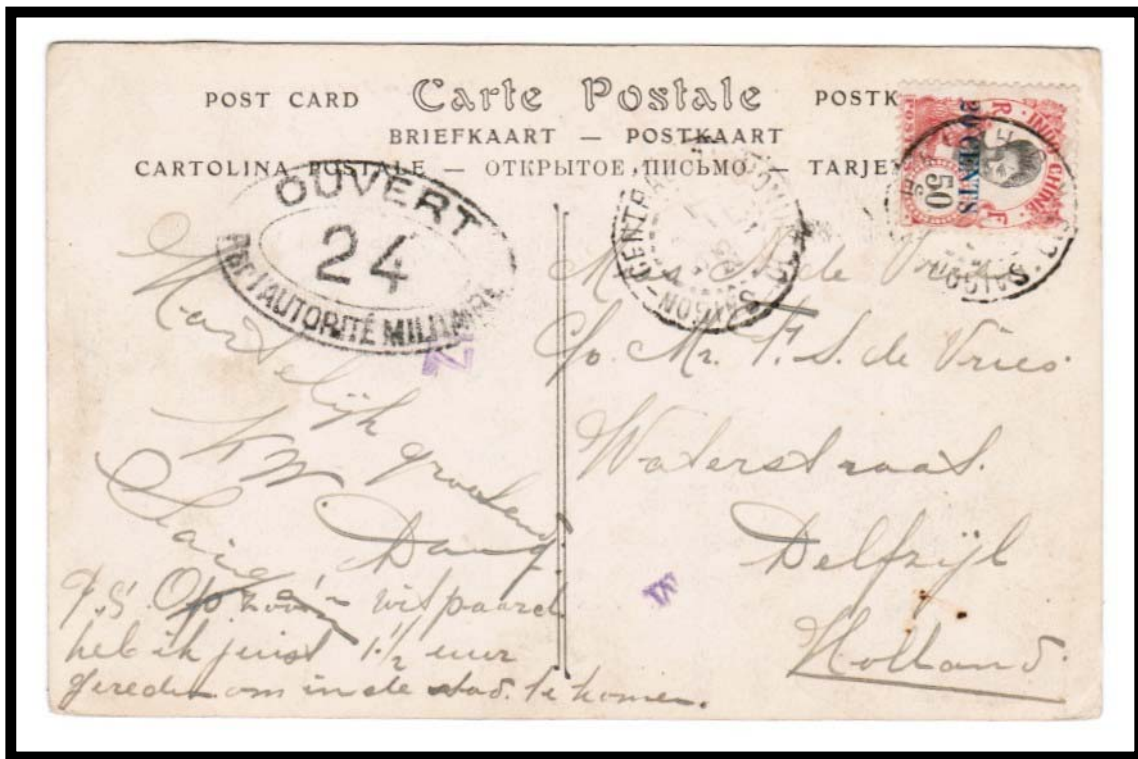 POST CARD Carte Postale POSTK
BRIEFKAART — POSTKAART
CARTOLINA POSTALE — ОТКРЫТОЕ ПИСЬМО — TARJE
OUVERT
24
PAR L'AUTORITÉ MILITAIRE
SAIGON-CENTRAL
INDO-CHINE
R F
POSTES
50
20 CENTS
SAIGON
Hartelijk
groetend
P.S. Op zoo'n wit paard
heb ik juist 1 1/2 uur
gereden om in de stad te komen.
de Vries
c/o. Mr. F. S. de Vries.
Waterstraat.
Delfzijl
Holland.